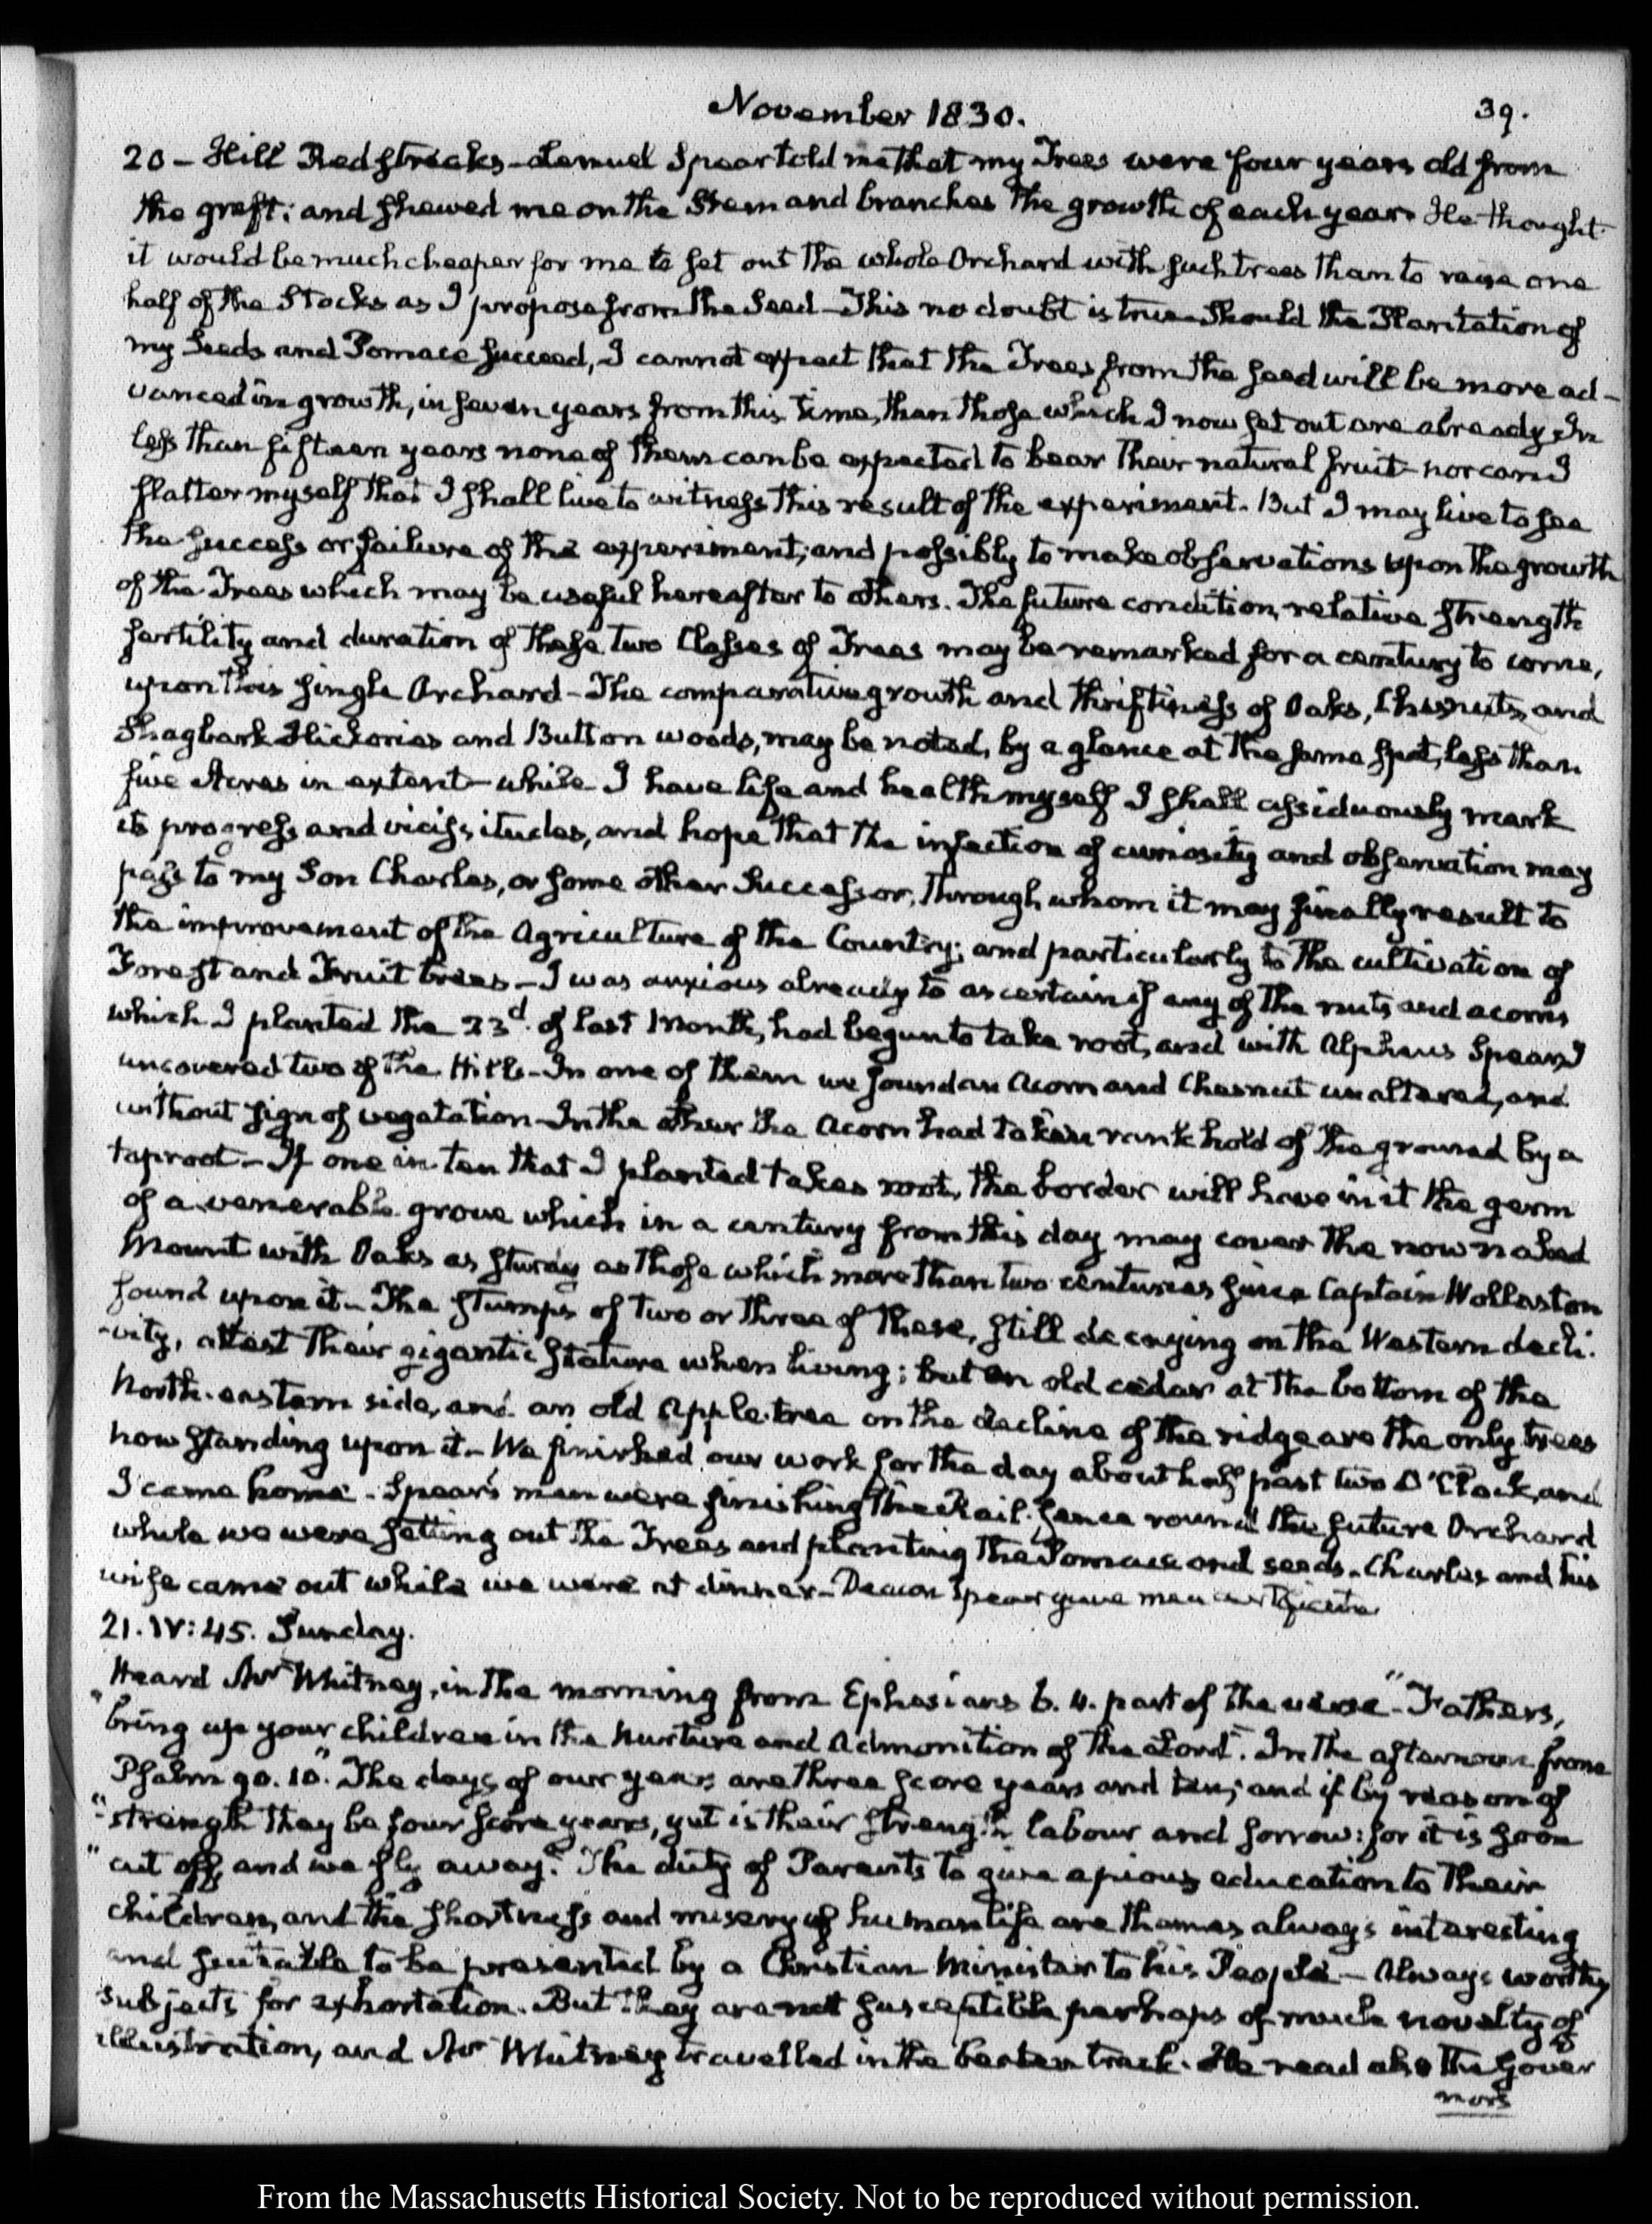 November 1830.
39.
20 – Hill Redstreaks – Lemuel Spear told me that my Trees were four years old from
the graft; and shewed me on the Stem and branches the growth of each year. He thought
it would be much cheaper for me to set out the whole Orchard with such trees than to raise one
half of the Stocks as I propose from the Seed – This no doubt is true. Should the Plantation of
my Seeds and Pomace succeed, I cannot expect that the Trees from the seed will be more ad-
vanced in growth, in seven years from this time, than those which I now set out are already. In
less than fifteen years none of them can be expected to bear their natural fruit – nor can I
flatter myself that I shall live to witness this result of the experiment. But I may live to see
the success or failure of the experiment; and possibly to make observations upon the growth
of the Trees which may be useful hereafter to others. The future condition, relative strength
fertility and duration of these two Classes of Trees may be remarked for a century to come,
upon this single Orchard – The comparative growth and thriftiness of Oaks, Chesnuts, and
Shagbark Hickories and Button woods, may be noted, by a glance at the same spot, less than
five Acres in extent – while I have life and health myself I shall assiduously mark
its progress and vicissitudes, and hope that the infection of curiosity and observation may
pass to my Son Charles, or some other Successor, through whom it may finally result to
the improvement of the Agriculture of the Country; and particularly to the cultivation of
Forest and Fruit trees. – I was anxious already to ascertain if any of the nuts and acorns
which I planted the 23d. of last Month, had begun to take root, and with Alpheus Spear I
uncovered two of the Hills – In one of them we found an Acorn and Chesnut unaltered, and
without sign of vegetation – In the other the Acorn had taken rank hold of the ground by a
taproot. – If one in ten that I planted takes root, the border will have in it the germ
of a venerable grove which in a century from this day may cover the now naked
Mount with Oaks as sturdy as those which more than two centuries since Captain Wollaston
found upon it – The stumps of two or three of these, still decaying on the Western decli-
-vity, attest their gigantic stature when living; but an old cedar at the bottom of the
North-eastern side, and an old Apple-tree on the decline of the ridge are the only trees
now standing upon it – We finished our work for the day about half past two O'Clock, and
I came home. Spear's men were finishing the Rail-fence round the future Orchard
while we were setting out the Trees and planting the Pomace and seeds. Charles and his
wife came out while we were at dinner – Deacon Spear gave me a certificate
21. IV:45. Sunday.
Heard Mr Whitney, in the morning from Ephesians 6. 4. part of the verse – "Fathers,
"bring up your children in the Nurture and Admonition of the Lord". In the afternoon from
Psalm 90. 10. "The days of our years are three score years and ten; and if by reason of
"strength they be four score years, yet is their strength labour and sorrow: for it is soon
"cut off, and we fly away." The duty of Parents to give a pious education to their
children, and the shortness and misery of human life are themes always interesting
and suitable to be presented by a Christian Minister to his People – Always worthy
subjects for exhortation. But they are not susceptible perhaps of much novelty of
illustration, and Mr Whitney travelled in the beaten track. He read also the Gover
nors
From the Massachusetts Historical Society. Not to be reproduced without permission.